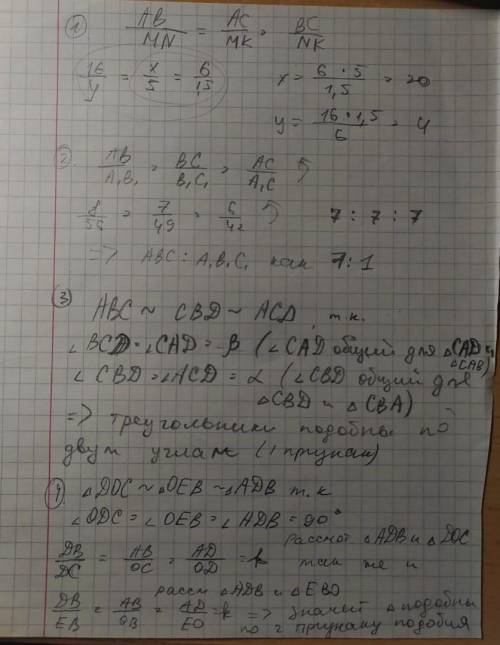 1) AB/MN = AC/MK = BC/NK
16/y = x/5 = 6/1,5 x = 6·5/1,5 = 20
y = 16·1,5/6 = 4
2 AB/A₁B₁ = BC/B₁C₁ = AC/A₁C
8/56 = 7/49 = 6/42 7 : 7 : 7
=> ABC : A₁B₁C₁ как 7:1
3) ABC ~ CBD ~ ACD, т.к.
∠BCD = ∠CAD = β (∠CAD общий для △CAD и △CAB)
∠CBD = ∠ACD = α (∠CBD общий для
△CBD и △CBA)
=> треугольники подобны по
двум углам (1 признак)
4) △DOC ~ △OEB ~ △ADB т.к
∠ODC = ∠OEB = ∠ADB = 90°
рассмот △ADB и △DOC
DB/DC = AB/OC = AD/OD = k так же и
рассм △ADB и △EBO
DB/EB = AB/OB = AD/EO = k => значит △ подобны
по 2 признаку подобия